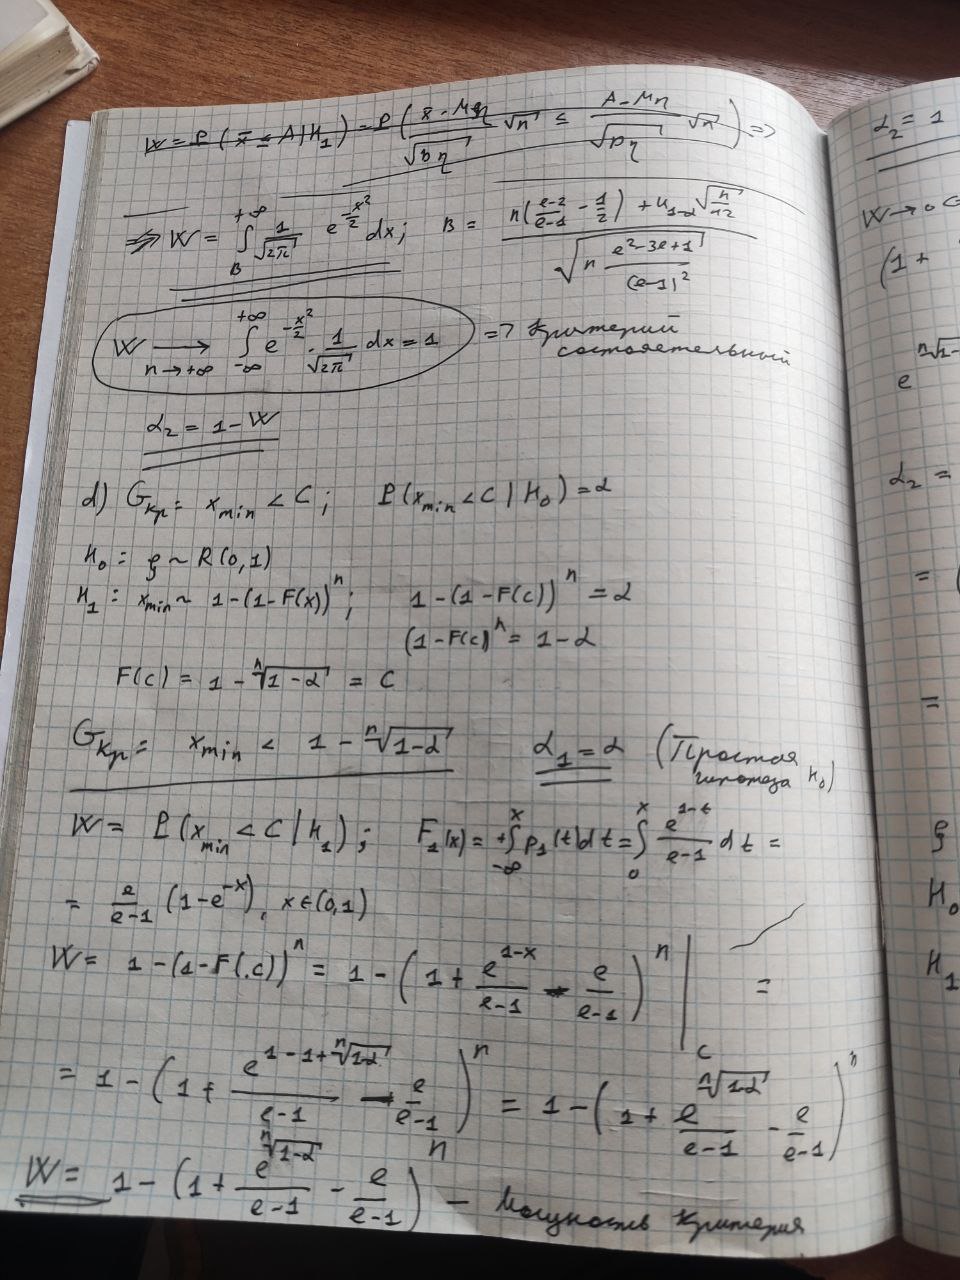 W = P(x̄ ≤ A|H₁) = P( (x̄ - Mη)/√Dη √n ≤ (A - Mη)/√Dη √n ) =>
=> W = ∫_B^{+∞} 1/√2π e^{-x²/2} dx; B = (n((e-2)/(e-1) - 1/2) + u_{1-α} √(n/12)) / √(n (e²-3e+1)/(e-1)²)
W →_{n→+∞} ∫_{-∞}^{+∞} e^{-x²/2} · 1/√2π dx = 1 => Критерий
состоятельный
α₂ = 1 - W
d) Gкр = x_min < C; P(x_min < C | H₀) = α
H₀ : ξ ~ R(0,1)
H₁ : x_min ~ 1-(1-F(x))ⁿ; 1-(1-F(c))ⁿ = α
(1-F(c)ⁿ = 1-α
F(c) = 1 - ⁿ√(1-α) = C
Gкр = x_min < 1 - ⁿ√(1-α) α₁ = α (Простая
гипотеза H₀)
W = P(x_min < C | H₁); F₁(x) = ∫_{-∞}^x p₁(t)dt = ∫_0^x e^{1-t}/(e-1) dt =
= e/(e-1) (1-e^{-x}), x∈(0,1)
W = 1-(1-F(c))ⁿ = 1-(1 + e^{1-x}/(e-1) - e/(e-1))ⁿ |_c =
= 1-(1 + e^{1-1+ⁿ√(1-α)}/(e-1) - e/(e-1))ⁿ = 1-(1 + e^{ⁿ√(1-α)}/(e-1) - e/(e-1))ⁿ
W = 1-(1 + e^{ⁿ√(1-α)}/(e-1) - e/(e-1))ⁿ - Мощность критерия
α₂ = 1
W → 
(1 +
e^{ⁿ√(1-
α₂ =
= (
=
ξ
H₀
H₁